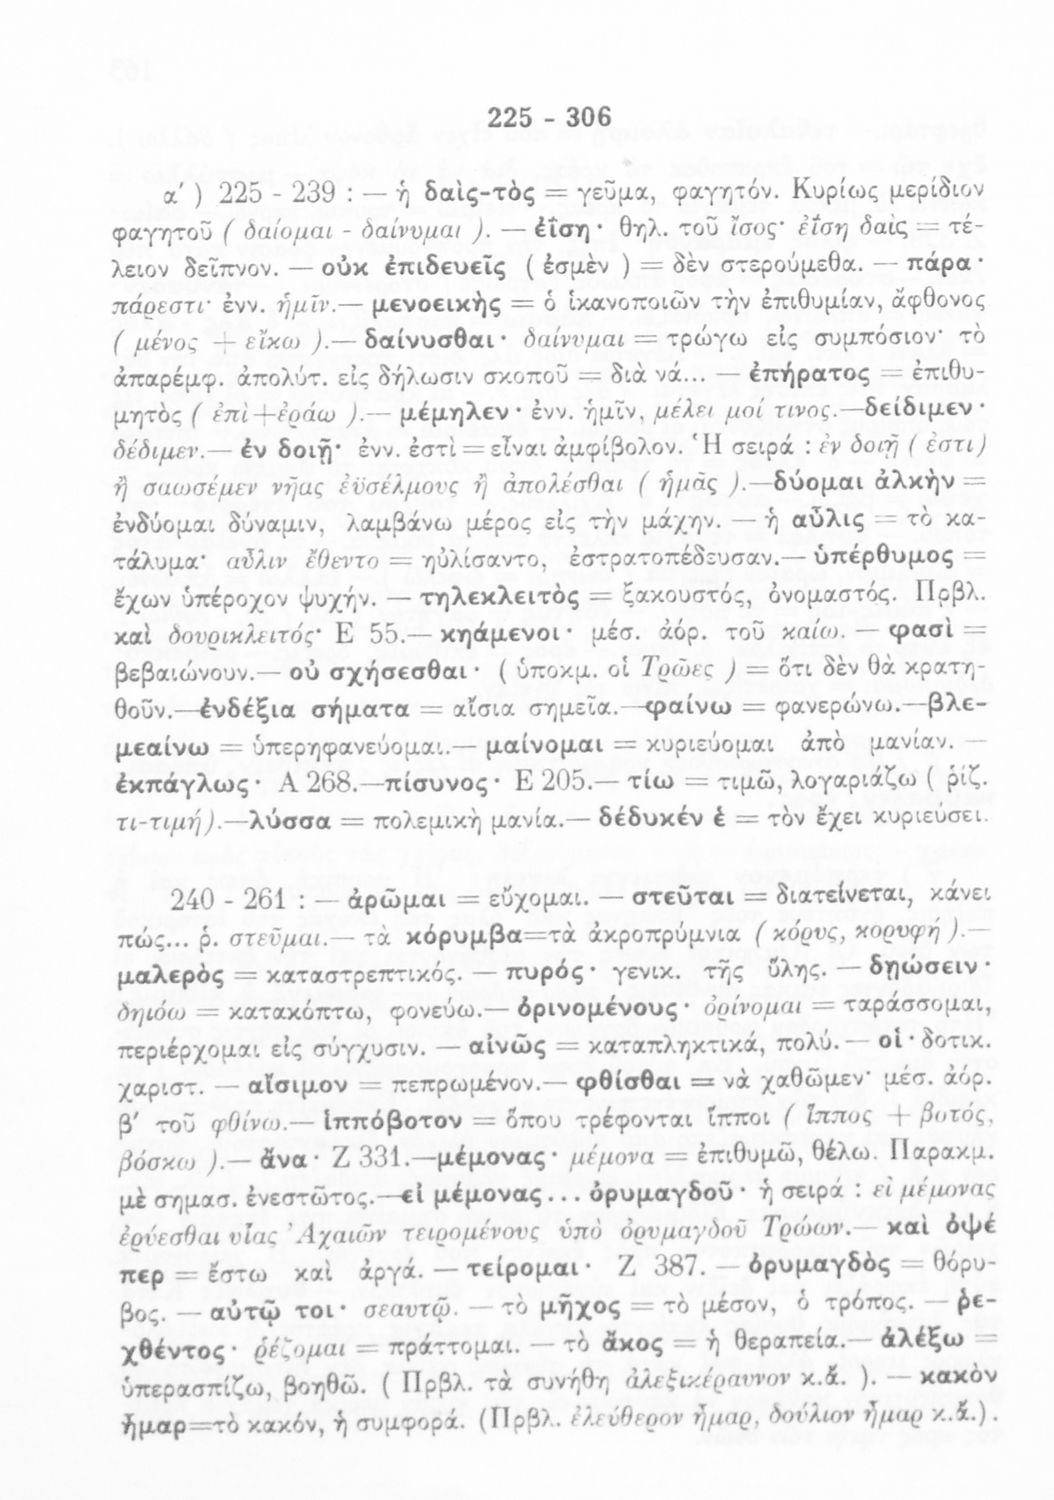 225 - 306
α' ) 225 - 239 : — ἡ δαὶς-τὸς = γεῦμα, φαγητόν. Κυρίως μερίδιον
φαγητοῦ ( δαίομαι - δαίνυμαι ). — ἐΐση · θηλ. τοῦ ἴσος· ἐΐση δαὶς = τέ-
λειον δεῖπνον. — οὐκ ἐπιδευεῖς ( ἐσμὲν ) = δὲν στερούμεθα. — πάρα ·
πάρεστι· ἐνν. ἡμῖν.— μενοεικὴς = ὁ ἱκανοποιῶν τὴν ἐπιθυμίαν, ἄφθονος
( μένος + εἴκω ).— δαίνυσθαι · δαίνυμαι = τρώγω εἰς συμπόσιον· τὸ
ἀπαρέμφ. ἀπολύτ. εἰς δήλωσιν σκοποῦ = διὰ νά... — ἐπήρατος = ἐπιθυ-
μητὸς ( ἐπὶ+ἐράω ).— μέμηλεν · ἐνν. ἡμῖν, μέλει μοί τινος.—δείδιμεν ·
δέδιμεν.— ἐν δοιῇ· ἐνν. ἐστὶ = εἶναι ἀμφίβολον. Ἡ σειρά : ἐν δοιῇ ( ἐστι)
ἢ σαωσέμεν νῆας ἐϋσέλμους ἢ ἀπολέσθαι ( ἡμᾶς ).—δύομαι ἀλκὴν =
ἐνδύομαι δύναμιν, λαμβάνω μέρος εἰς τὴν μάχην. — ἡ αὖλις = τὸ κα-
τάλυμα· αὖλιν ἔθεντο = ηὐλίσαντο, ἐστρατοπέδευσαν.— ὑπέρθυμος =
ἔχων ὑπέροχον ψυχήν. — τηλεκλειτὸς = ξακουστός, ὀνομαστός. Πρβλ.
καὶ δουρικλειτός· Ε 55.— κηάμενοι · μέσ. ἀόρ. τοῦ καίω. — φασὶ =
βεβαιώνουν.— οὐ σχήσεσθαι · ( ὑποκμ. οἱ Τρῶες ) = ὅτι δὲν θὰ κρατη-
θοῦν.—ἐνδέξια σήματα = αἴσια σημεῖα.—φαίνω = φανερώνω.—βλε-
μεαίνω = ὑπερηφανεύομαι.— μαίνομαι = κυριεύομαι ἀπὸ μανίαν. —
ἐκπάγλως · Α 268.—πίσυνος · Ε 205.— τίω = τιμῶ, λογαριάζω ( ῥίζ.
τι-τιμή).—λύσσα = πολεμικὴ μανία.— δέδυκέν ἑ = τὸν ἔχει κυριεύσει.
240 - 261 : — ἀρῶμαι = εὔχομαι. — στεῦται = διατείνεται, κάνει
πώς... ῥ. στεῦμαι.— τὰ κόρυμβα=τὰ ἀκροπρύμνια ( κόρυς, κορυφή ).—
μαλερὸς = καταστρεπτικός. — πυρός · γενικ. τῆς ὕλης. — δῃώσειν ·
δηιόω = κατακόπτω, φονεύω.— ὀρινομένους · ὀρίνομαι = ταράσσομαι,
περιέρχομαι εἰς σύγχυσιν. — αἰνῶς = καταπληκτικά, πολύ. — οἱ · δοτικ.
χαριστ. — αἴσιμον = πεπρωμένον.— φθίσθαι = νὰ χαθῶμεν· μέσ. ἀόρ.
β' τοῦ φθίνω.— ἱππόβοτον = ὅπου τρέφονται ἵπποι ( ἵππος + βοτός,
βόσκω ).— ἄνα · Ζ 331.—μέμονας · μέμονα = ἐπιθυμῶ, θέλω. Παρακμ.
μὲ σημασ. ἐνεστῶτος.—εἰ μέμονας... ὀρυμαγδοῦ · ἡ σειρά : εἰ μέμονας
ἐρύεσθαι υἷας Ἀχαιῶν τειρομένους ὑπὸ ὀρυμαγδοῦ Τρώων.— καὶ ὀψέ
περ = ἔστω καὶ ἀργά. — τείρομαι · Ζ 387. — ὀρυμαγδὸς = θόρυ-
βος. — αὐτῷ τοι · σεαυτῷ. — τὸ μῆχος = τὸ μέσον, ὁ τρόπος. — ῥε-
χθέντος · ῥέζομαι = πράττομαι. — τὸ ἄκος = ἡ θεραπεία.— ἀλέξω =
ὑπερασπίζω, βοηθῶ. ( Πρβλ. τὰ συνήθη ἀλεξικέραυνον κ.ἄ. ). — κακὸν
ἦμαρ=τὸ κακόν, ἡ συμφορά. (Πρβλ. ἐλεύθερον ἦμαρ, δούλιον ἦμαρ κ.ἄ.).